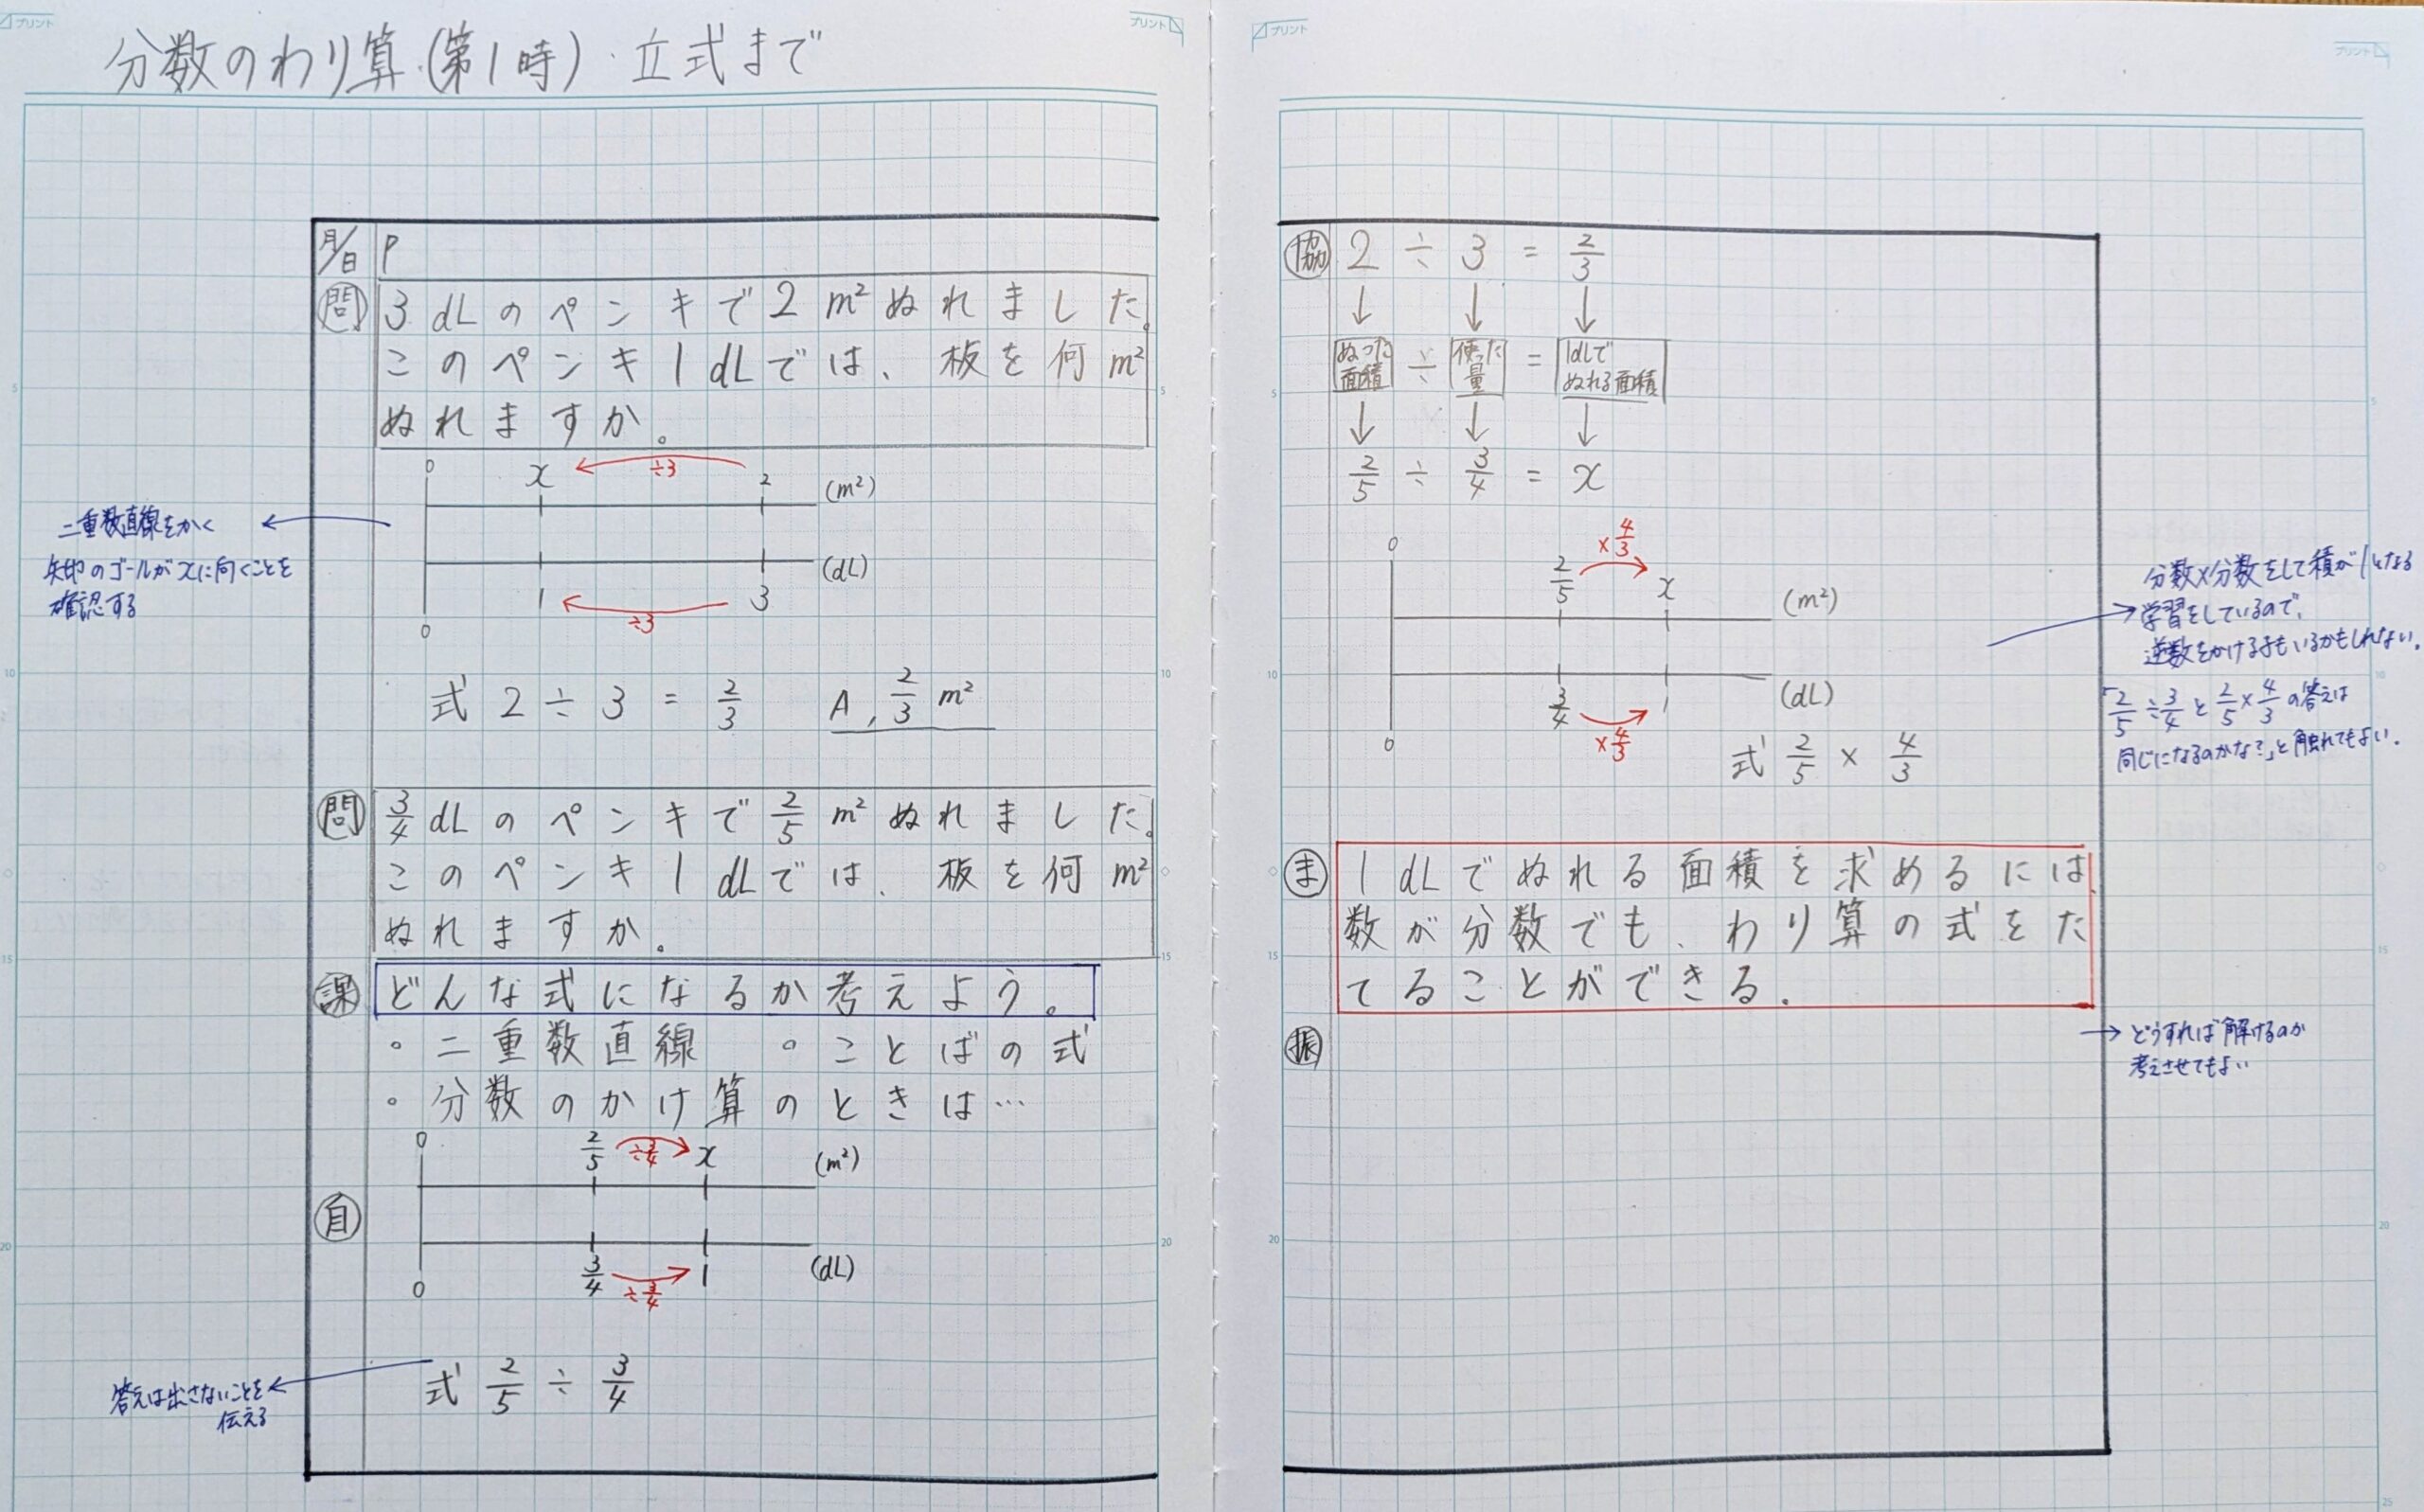 プリント
プリント
分数のわり算(第1時)・立式まで
月/日 P
問 3dLのペンキで2m²ぬれました。
このペンキ1dLでは、板を何m²
ぬれますか。
0 x ÷3 2 (m²)
0 1 ÷3 3 (dL)
二重数直線をかく
矢印のゴールがxに向くことを
確認する
式 2÷3=2/3 A, 2/3 m²
問 3/4dLのペンキで2/5m²ぬれました。
このペンキ1dLでは、板を何m²
ぬれますか。
課 どんな式になるか考えよう。
。二重数直線 。ことばの式
。分数のかけ算のときは…
自
0 2/5 ÷3/4 x (m²)
0 3/4 ÷3/4 1 (dL)
式 2/5÷3/4
答えは出さないことを
伝える
プリント
プリント
協 2÷3=2/3
↓ ↓ ↓
ぬった面積 ÷ 使った量 = 1dLでぬれる面積
↓ ↓ ↓
2/5÷3/4=x
0 2/5 ×4/3 x (m²)
0 3/4 ×4/3 1 (dL)
式 2/5×4/3
分数×分数をして積が1となる
学習をしているので、
逆数をかける子もいるかもしれない。
「2/5÷3/4と2/5×4/3の答えは
同じになるのかな?」と触れてもよい。
ま 1dLでぬれる面積を求めるには、
数が分数でも、わり算の式をた
てることができる。
振
→どうすれば解けるのか
考えさせてもよい
5
10
15
20
5
10
15
20
5
10
15
20
25